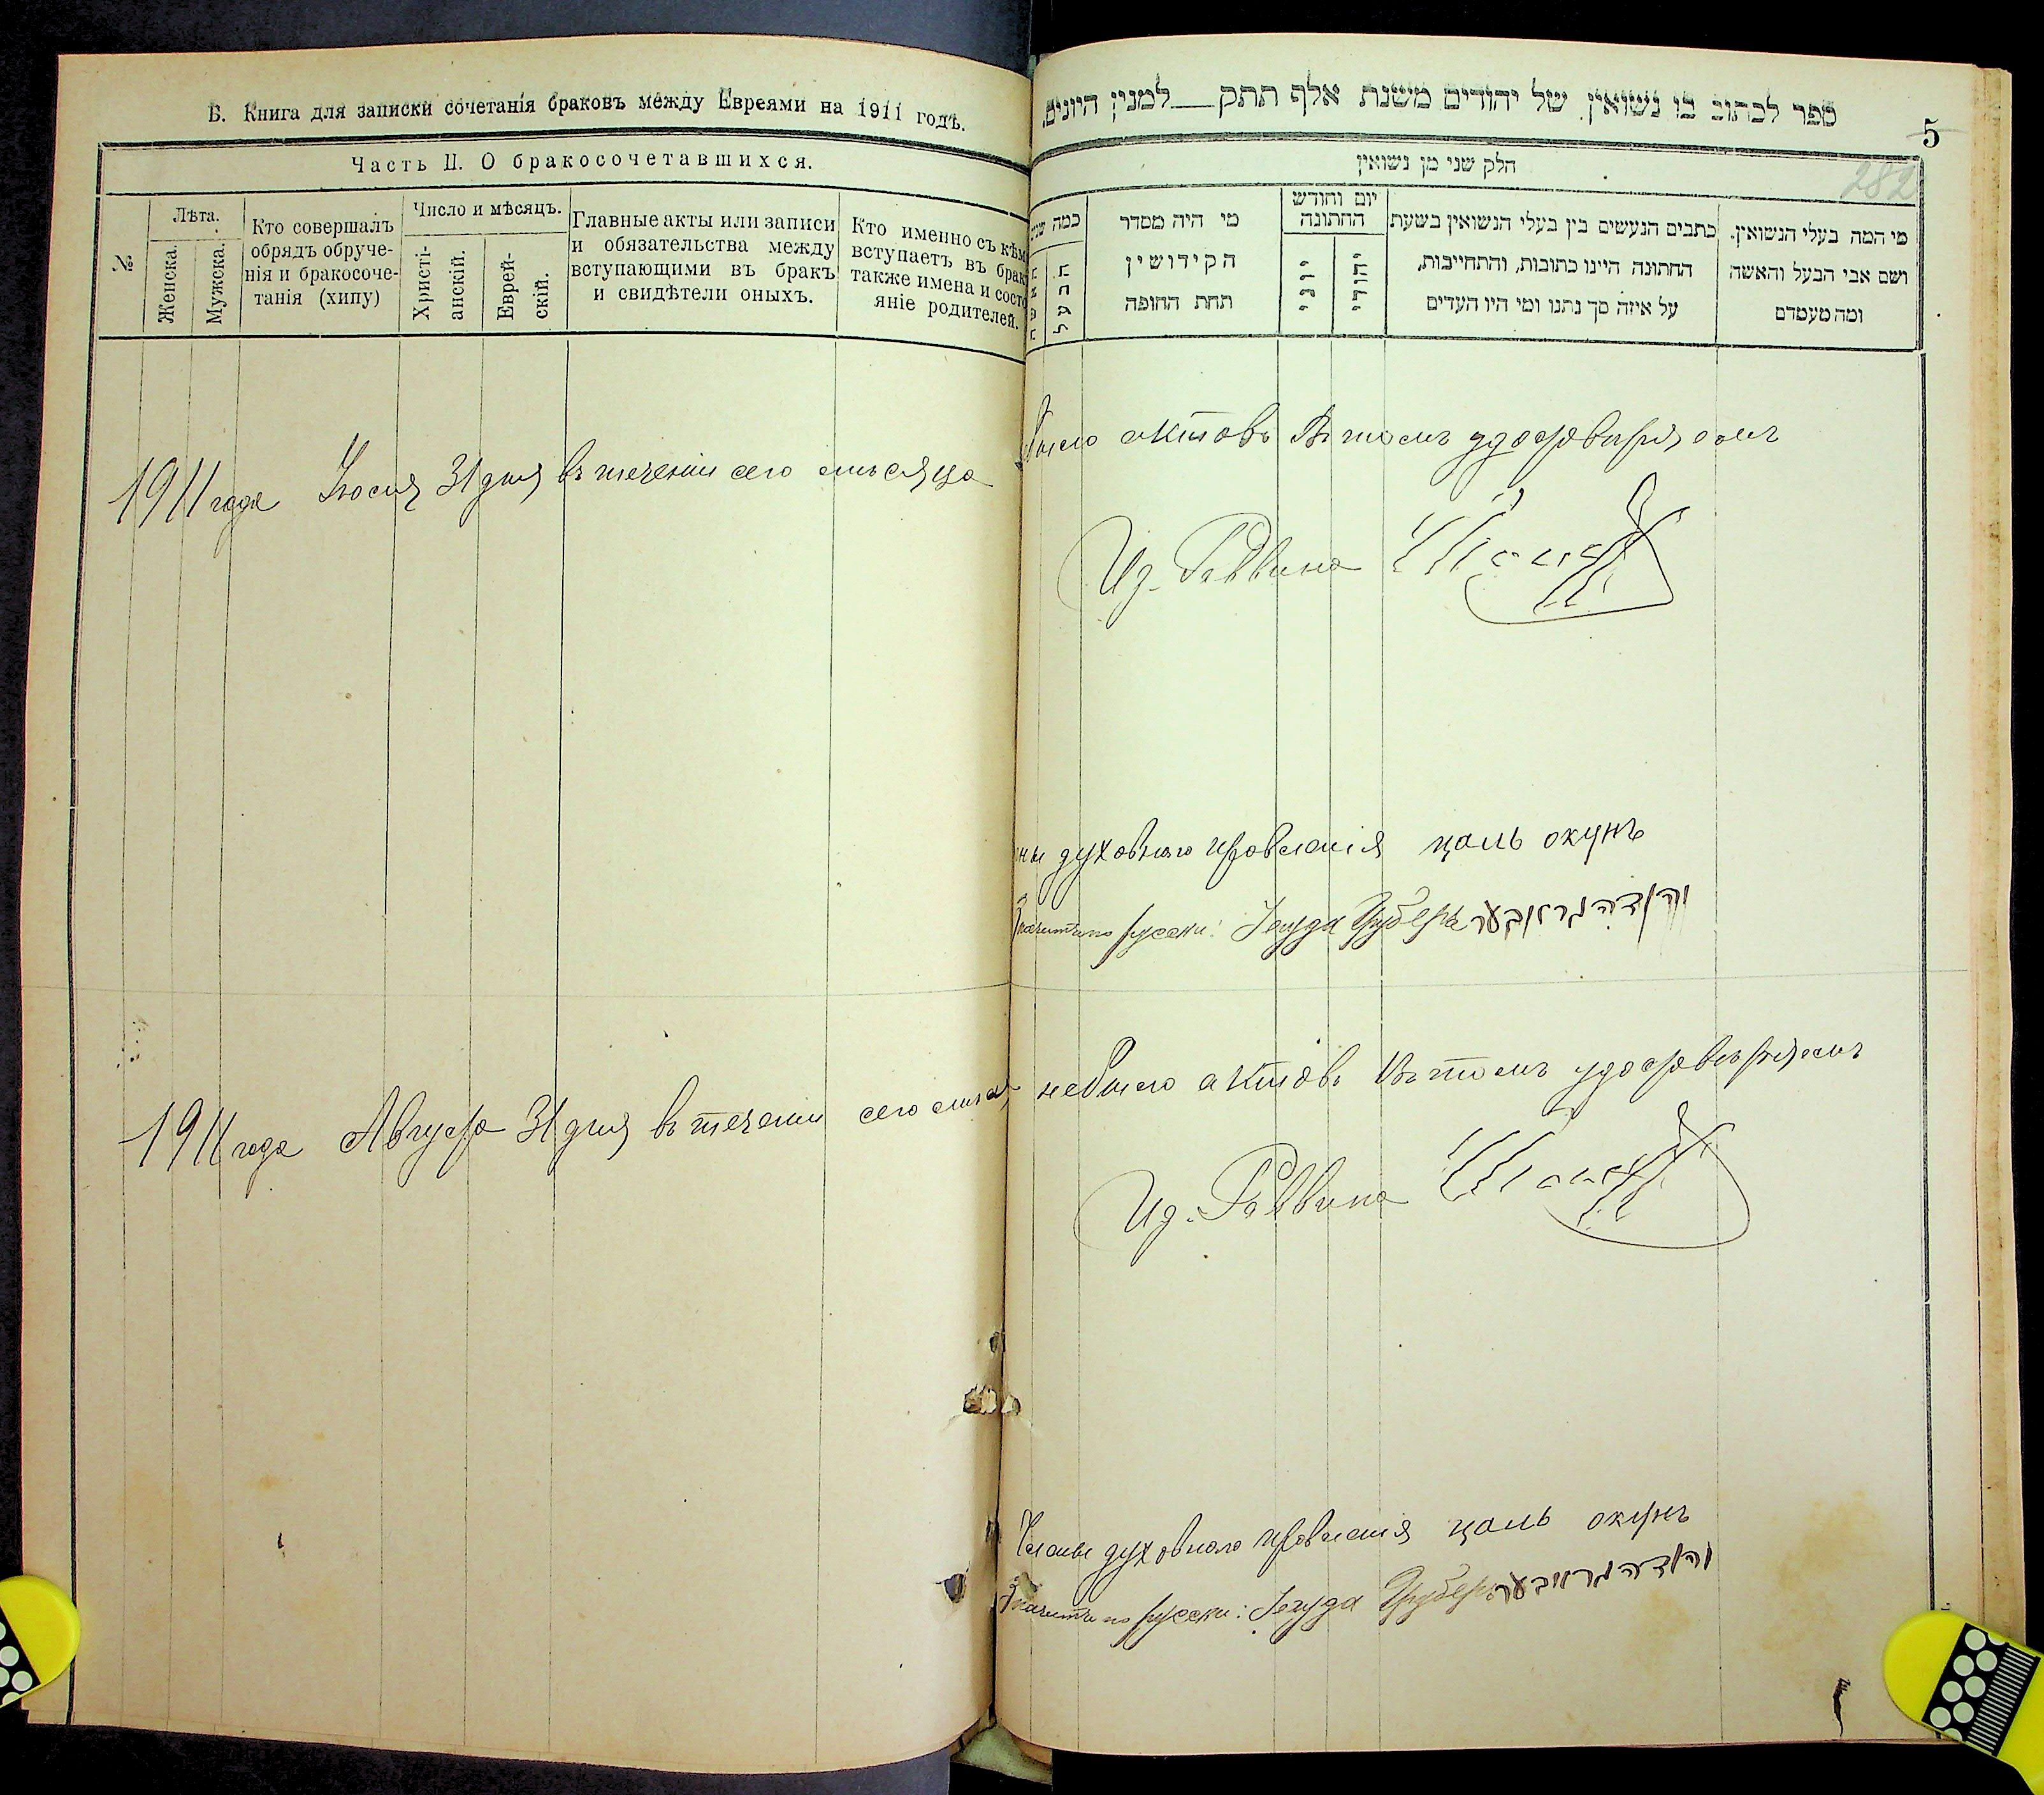 Б. Книга для записки сочетанія браковъ между Евреями на 1911 годъ.
Часть II. О бракосочетавшихся.
№
Лѣта.
Женска.
Мужска.
Кто совершалъ
обрядъ обруче-
нія и бракосоче-
танія (хипу)
Число и мѣсяцъ.
Христі-
анскій.
Еврей-
скій.
Главные акты или записи
и обязательства между
вступающими въ бракъ
и свидѣтели оныхъ.
Кто именно съ кѣм
вступаетъ въ брак
также имена и состо
яніе родителей.
1911 года Іюля 31 дня въ теченіи сего мѣсяца
1911 года Августа 31 дня въ теченіи сего
ספר לכתוב בו נשואין של יהודים משנת אלף תתק למנין היונים.
5
282
חלק שני מן נשואין
כמה שנים
האשה
הבעל
מי היה מסדר
הקידושין
תחת החופה
יום וחודש
החתונה
יוני
יהודי
כתבים הנעשים בין בעלי הנשואין בשעת
החתונה היינו כתובות, והתחייבות,
על איזה סך נתנו ומי היו העדים
מי המה בעלי הנשואין.
ושם אבי הבעל והאשה
ומה מעמדם
было актовъ Въ томъ удостовѣряемъ
Из. Раввина
ны духовнаго правленія цаль окунь
Значитъ по русски: Іегуда Груберъ יהודה גרובער
не было актовъ Въ томъ удостовѣряемъ
Из. Раввина
Члены духовнаго правленія цаль окунь
Значитъ по русски: Іегуда Груберъ יהודה גרובער